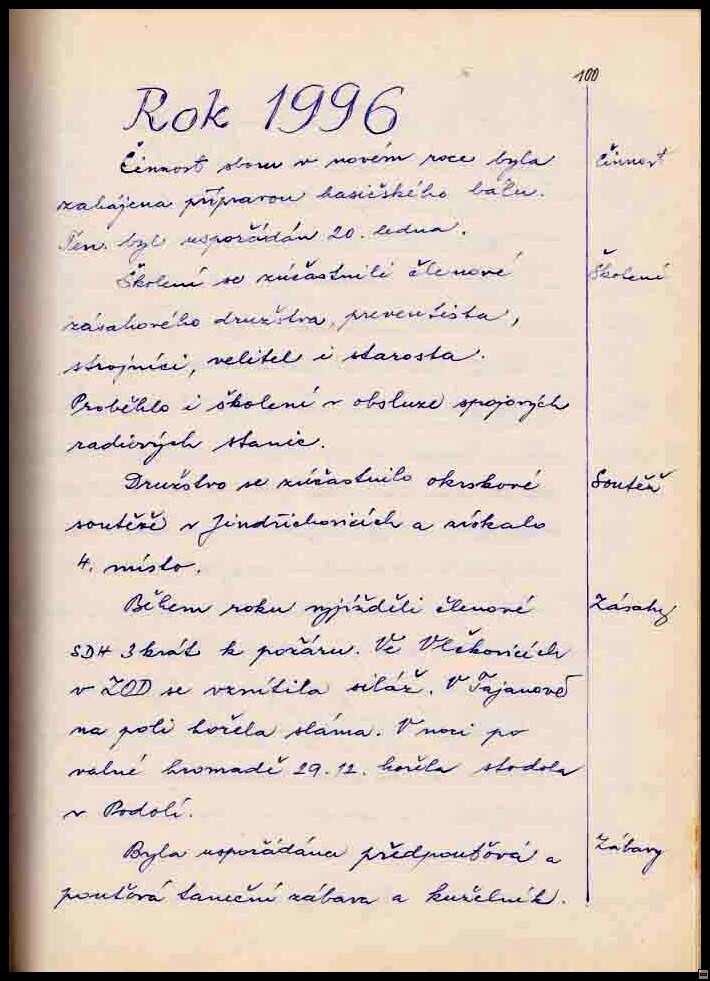 100
Rok 1996
Činnost sboru v novém roce byla
Činnost
zahájena přípravou hasičského bálu.
Ten byl uspořádán 20. ledna.
Školení se zúčastnili členové
Školení
zásahového družstva, preventista,
strojníci, velitel i starosta.
Proběhlo i školení v obsluze spojových
radiových stanic.
Družstvo se zúčastnilo okrskové
Soutěž
soutěže v Jindřichovicích a získalo
4. místo.
Během roku vyjížděli členové
Zásahy
SDH 3krát k požáru. Ve Vlčkovicích
v ZOD se vznítila siláž. V Tajanově
na poli hořela sláma. V noci po
valné hromadě 29.12. hořela stodola
v Podolí.
Byla uspořádána předpouťová a
Zábavy
pouťová taneční zábava a kuželník.